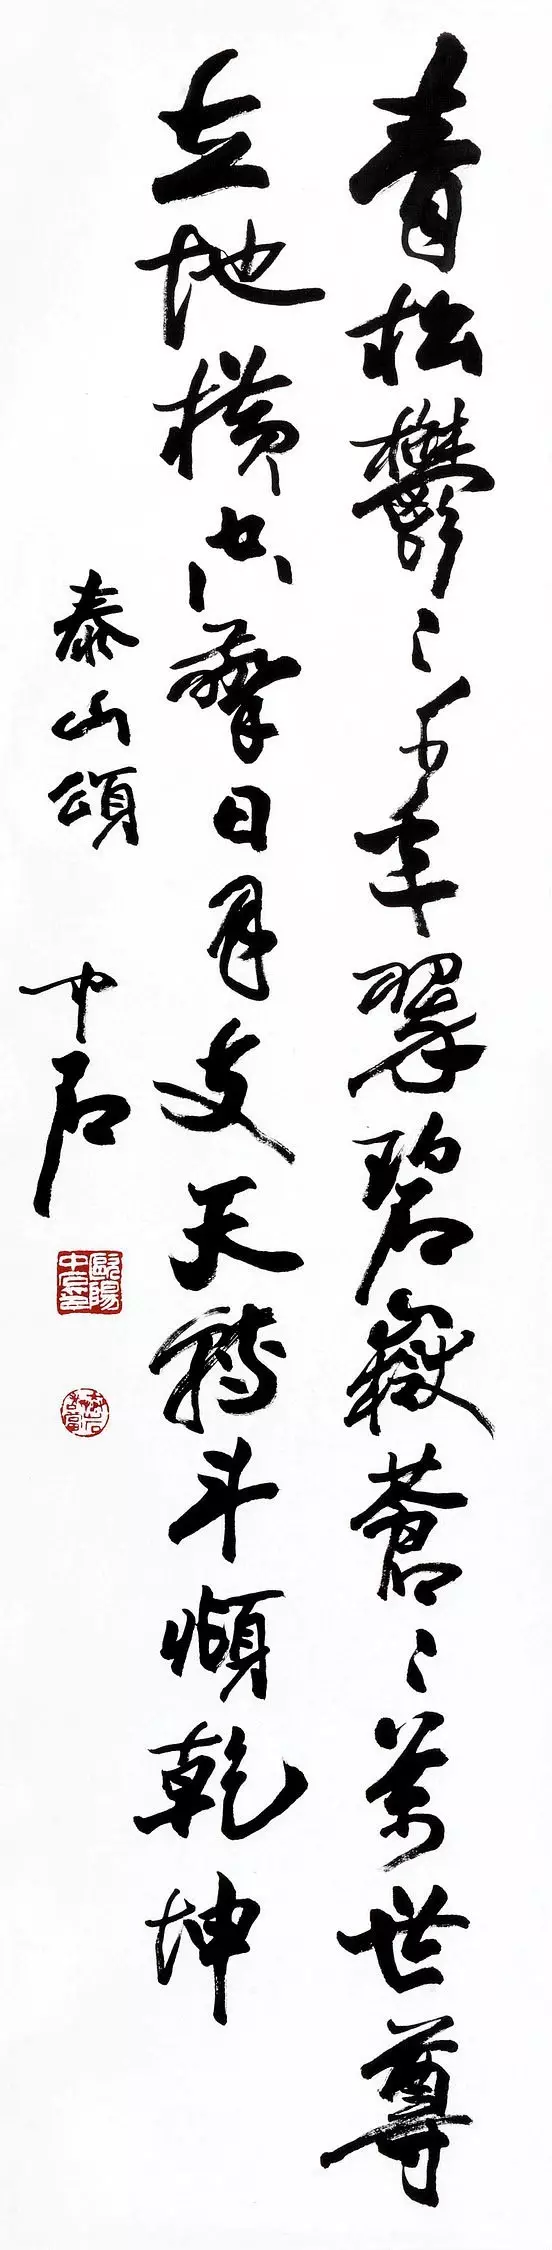 青松鬱〻千年翠碧嶽蒼〻萬世尊
立地橫空擎日月支天轉斗順乾坤
泰山頌
中石
歐陽中石